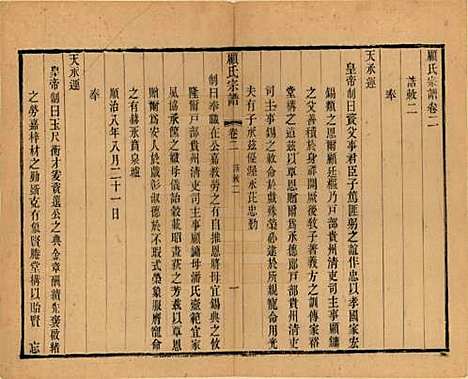 顧氏宗譜卷二
誥敕二
奉
天承運
皇帝制曰資父事君臣子篤匪躬之誼作忠以孝國家宏
錫類之恩爾顧廷樞乃戶部貴州清吏司主事顧鏞
之父善積於身祥開厥後教子著義方之訓傳家裕
堂構之遺兹以覃恩贈爾爲承德郎戶部貴州清吏
司主事錫之敕命於戲殊榮必逮於所親寵命用光
夫有子永荗優渥永茂忠勤
顧氏宗譜
卷二
誥敕二
一
制曰奉職在公嘉教勞之有自推恩將母宜錫典之攸
隆爾戶部貴州清吏司主事顧鏞母潘氏壼範宜家
夙協承筐之媺母儀詒穀載昭畫荻之芳兹以覃恩
贈爾爲安人於戲彰淑德於不瑕式榮象服膺寵命
之有赫永賁泉壚
順治八年八月二十一日
奉
天承運
皇帝制曰玉尺衡才爰資選公之典金章酬績先褒啟緒
之勞嘉梓材之勤樸克有象賢離堂構以貽賢　忘